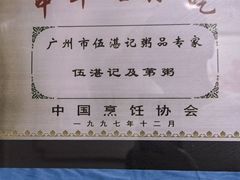 广州市伍湛记粥品专家
伍湛记及第粥
中国烹饪协会
一九九七年十二月